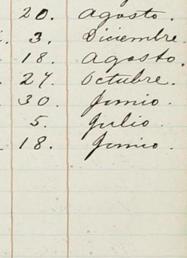 20. Agosto.
3. Diciembre
18. Agosto.
27. Octubre.
30. Junio.
5. Julio
18. Junio.